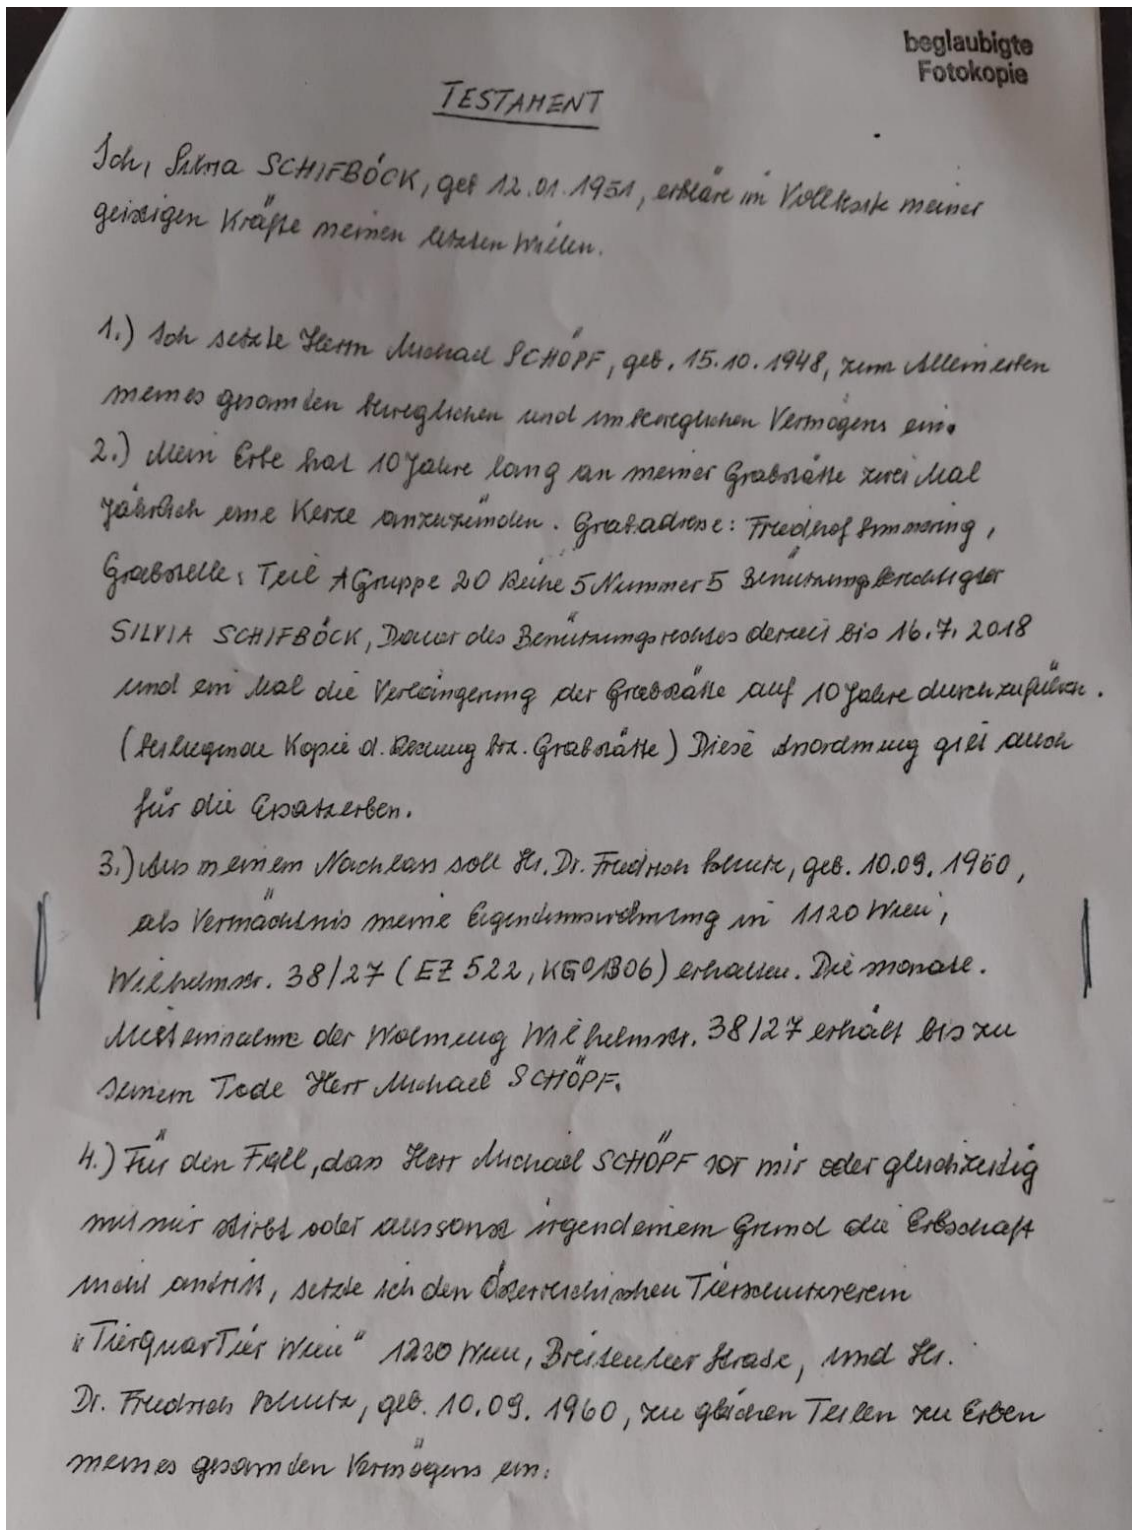 beglaubigte
Fotokopie
TESTAMENT
Ich, Silvia SCHIFBÖCK, geb 12.01.1951, erkläre im Vollbesitz meiner
geistigen Kräfte meinen letzten Willen.
1.) Ich setzte Herrn Michael SCHÖPF, geb. 15.10.1948, zum Alleinerben
meines gesamten beweglichen und unbeweglichen Vermögens ein.
2.) Mein Erbe hat 10 Jahre lang an meiner Grabstätte zwei Mal
jährlich eine Kerze anzuzünden. Grabadresse: Friedhof Simmering,
Grabstelle: Teil A Gruppe 20 Reihe 5 Nummer 5 Benützungsberechtigter
SILVIA SCHIFBÖCK, Dauer des Benützungsrechtes derzeit bis 16.7.2018
und ein Mal die Verlängerung der Grabstätte auf 10 Jahre durchzuführen.
(beiliegende Kopie d. Rechnung bzr. Grabstätte) Diese Anordnung gilt auch
für die Ersatzerben.
3.) Aus meinem Nachlass soll Hr. Dr. Friedrich Schutz, geb. 10.09.1960,
als Vermächtnis meine Eigentumswohnung in 1120 Wien,
Wilhelmstr. 38/27 (EZ 522, KG 01306) erhalten. Die monatl.
Mieteinnahme der Wohnung Wilhelmstr. 38/27 erhält bis zu
seinem Tode Herr Michael SCHÖPF.
4.) Für den Fall, dass Herr Michael SCHÖPF vor mir oder gleichzeitig
mit mir stirbt oder aus sonst irgendeinem Grund die Erbschaft
nicht antritt, setzte ich den Österreichischen Tierschutzverein
"TierQuarTier Wien" 1220 Wien, Breitenleer Straße, und Hr.
Dr. Friedrich Schutz, geb. 10.09.1960, zu gleichen Teilen zu Erben
meines gesamten Vermögens ein.